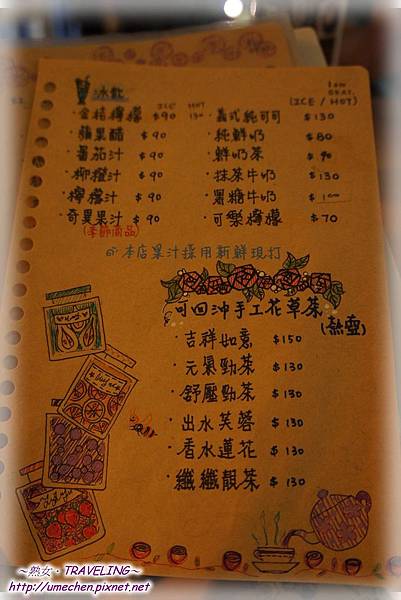 冰飲 ICE HOT
·金桔檸檬 $90 130
·蘋果醋 $90
·番茄汁 $90
·柳橙汁 $90
·檸檬汁 $90
·奇異果汁 $90
(季節商品)
(ICE / HOT)
·義式純可可 $130
·純鮮奶 $80
·鮮奶茶 $90
·抹茶牛奶 $130
·黑糖牛奶 $100
·可樂檸檬 $70
本店果汁採用新鮮現打
可回沖手工花草茶
(熱壺)
·吉祥如意 $150
·元氣勁茶 $130
·舒壓勁茶 $130
·出水芙蓉 $130
·香水蓮花 $130
·纖纖靚茶 $130
~熟女·TRAVELING~
http://umechen.pixnet.net